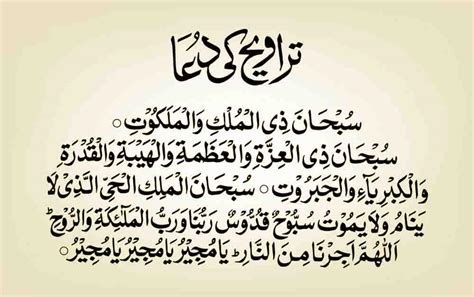 تراویح کی دُعا
سُبْحَانَ ذِی الْمُلْكِ وَالْمَلَكُوْتِ ○
سُبْحَانَ ذِی الْعِزَّةِ وَالْعَظَمَةِ وَالْهَيْبَةِ وَالْقُدْرَةِ
وَالْكِبْرِيَآءِ وَالْجَبَرُوْتِ ○ سُبْحَانَ الْمَلِكِ الْحَیِّ الَّذِیْ لَا
يَنَامُ وَلَا يَمُوْتُ سُبُّوْحٌ قُدُّوْسٌ رَبُّنَا وَرَبُّ الْمَلٰٓئِكَةِ وَالرُّوْحِ ؕ
اَللّٰهُمَّ اَجِرْنَا مِنَ النَّارِ ؕ يَا مُجِيْرُ يَا مُجِيْرُ يَا مُجِيْرُ ○